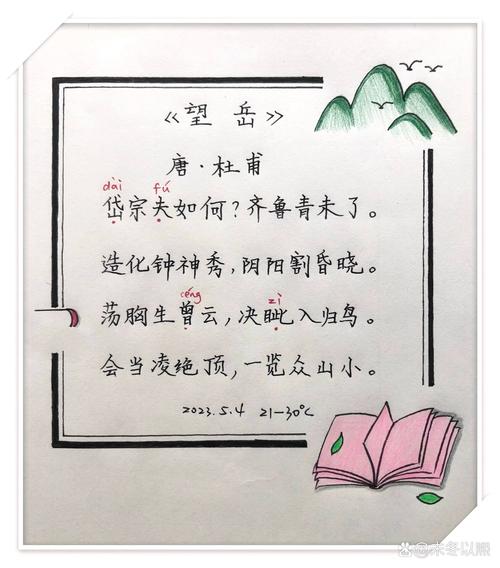 《望岳》
唐·杜甫
dài fú
岱宗夫如何？齐鲁青未了。
造化钟神秀，阴阳割昏晓。
céng zì
荡胸生曾云，决眦入归鸟。
会当凌绝顶，一览众山小。
2023.5.4 21-30°C